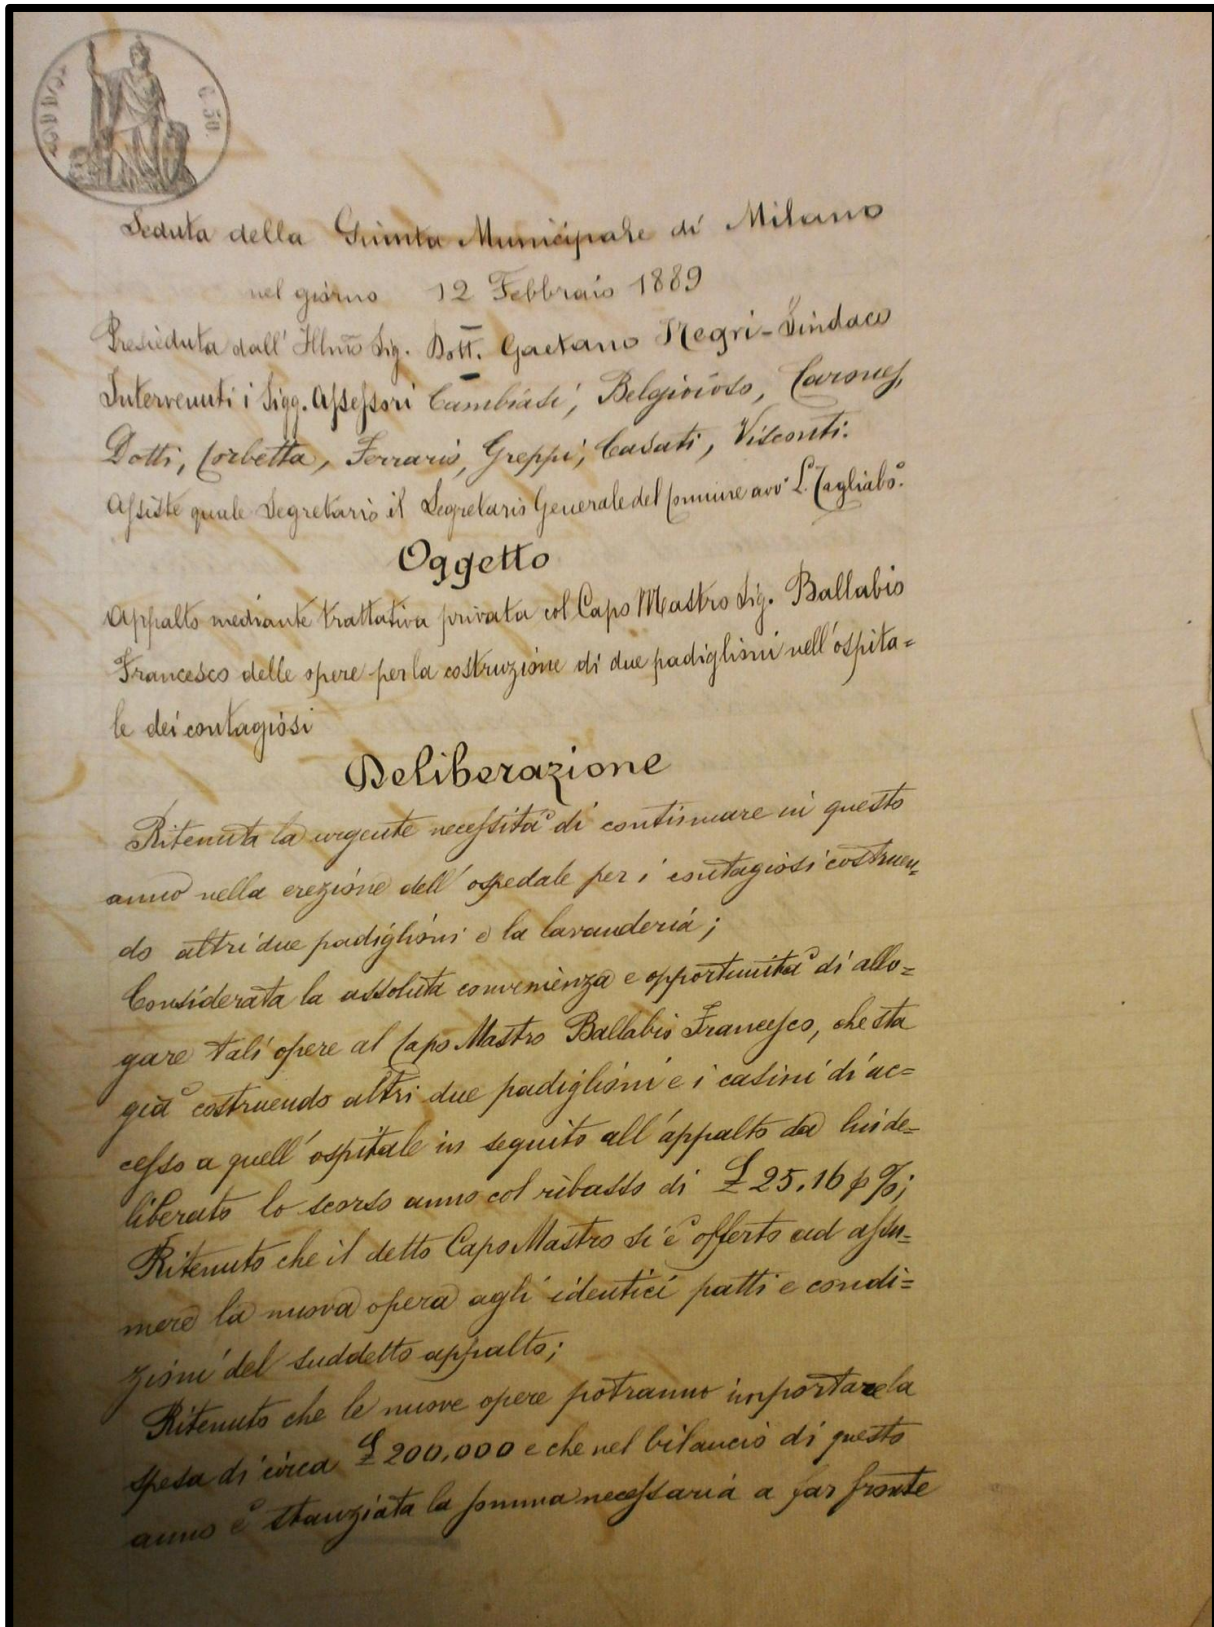 C. 50.
Seduta della Giunta Municipale di Milano
nel giorno 12 Febbraio 1889
Presieduta dall' Illmo Sig. Dott. Gaetano Negri - Sindaco
Intervenuti i Sigg. Assessori Cambiasi, Belgioioso, Carones,
Dotti, Corbetta, Ferrario, Greppi, Casati, Visconti.
Assiste quale Segretario il Segretario Generale del Comune avv. L. Tagliabò.
Oggetto
Appalto mediante trattativa privata col Capo Mastro Sig. Ballabio
Francesco delle opere per la costruzione di due padiglioni nell'ospita=
le dei contagiosi
Deliberazione
Ritenuta la urgente necessità di continuare in questo
anno nella erezione dell'ospedale per i contagiosi costruen=
do altri due padiglioni e la lavanderia;
Considerata la assoluta convenienza e opportunità di allo=
gare tali opere al Capo Mastro Ballabio Francesco, che sta
già costruendo altri due padiglioni e i casini di ac=
cesso a quell'ospitale in seguito all'appalto da lui de=
liberato lo scorso anno col ribasso di £ 25.16 p %;
Ritenuto che il detto Capo Mastro si è offerto ad assu=
mere la nuova opera agli identici patti e condi=
zioni del suddetto appalto;
Ritenuto che le nuove opere potranno importare la
spesa di circa £ 200,000 e che nel bilancio di questo
anno è stanziata la somma necessaria a far fronte